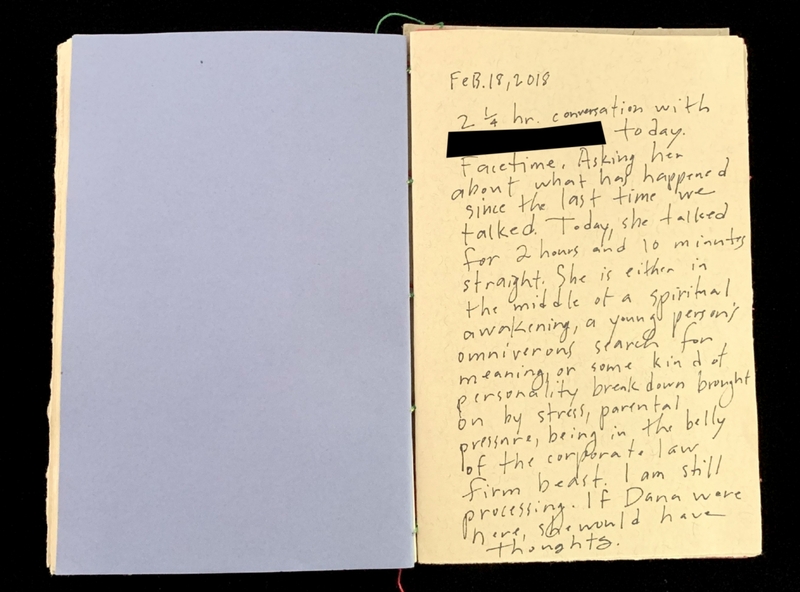 FeB. 18, 2018
2 ¼ hr. conversation with
today.
Facetime. Asking her
about what has happened
since the last time we
talked. Today, she talked
for 2 hours and 10 minutes
straight. She is either in
the middle of a spiritual
awakening, a young person's
omniverons search for
meaning, or some kind of
personality breakdown brought
on by stress, parental
pressure, being in the belly
of the corporate law
firm beast. I am still
processing. If Dana were
here, she would have
thoughts.